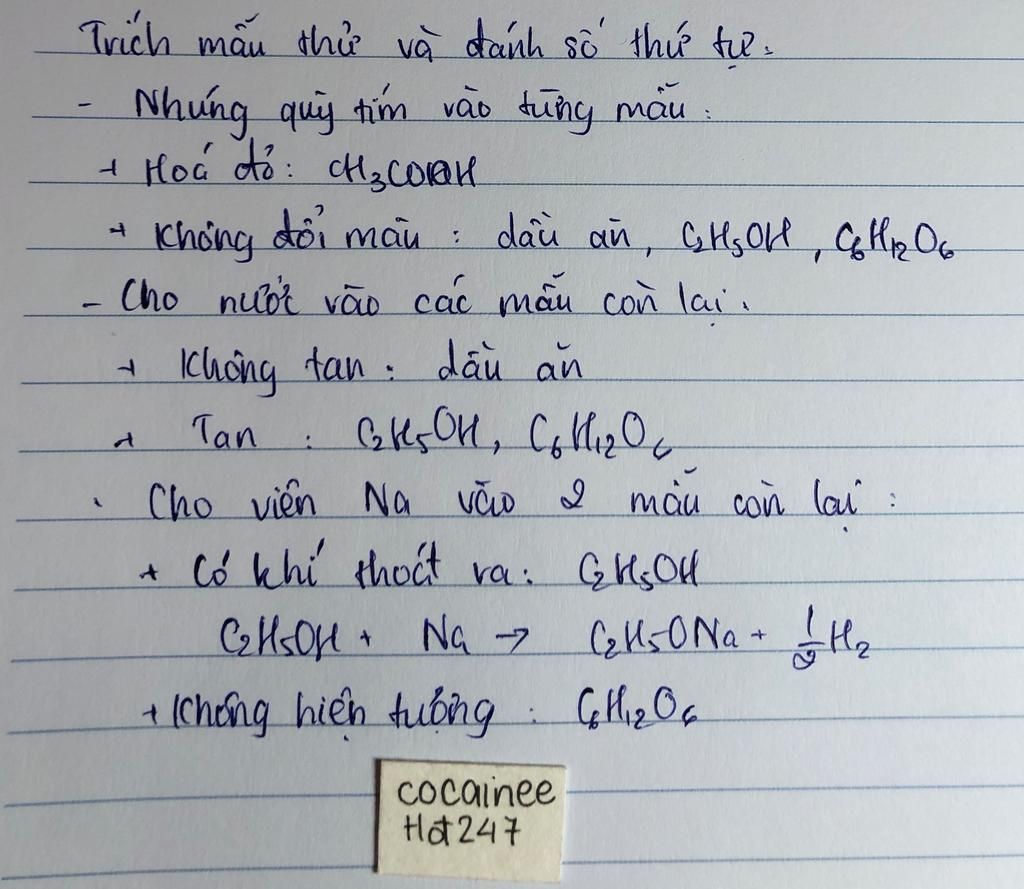 Trích mẫu thử và đánh số thứ tự:
- Nhúng quỳ tím vào từng mẫu:
+ Hoá đỏ: CH₃COOH
+ Không đổi màu: dầu ăn, C₂H₅OH, C₆H₁₂O₆
- Cho nước vào các mẫu còn lại:
+ Không tan: dầu ăn
+ Tan: C₂H₅OH, C₆H₁₂O₆
- Cho viên Na vào 2 mẫu còn lại:
+ Có khí thoát ra: C₂H₅OH
C₂H₅OH + Na → C₂H₅ONa + 1/2 H₂
+ Không hiện tượng: C₆H₁₂O₆
cocainee
Hot247